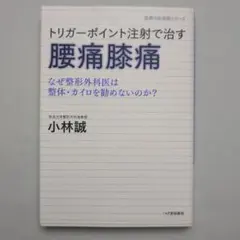 トリガーポイント注射で治す
腰痛膝痛
なぜ整形外科医は
整体・カイロを勧めないのか?
小林誠